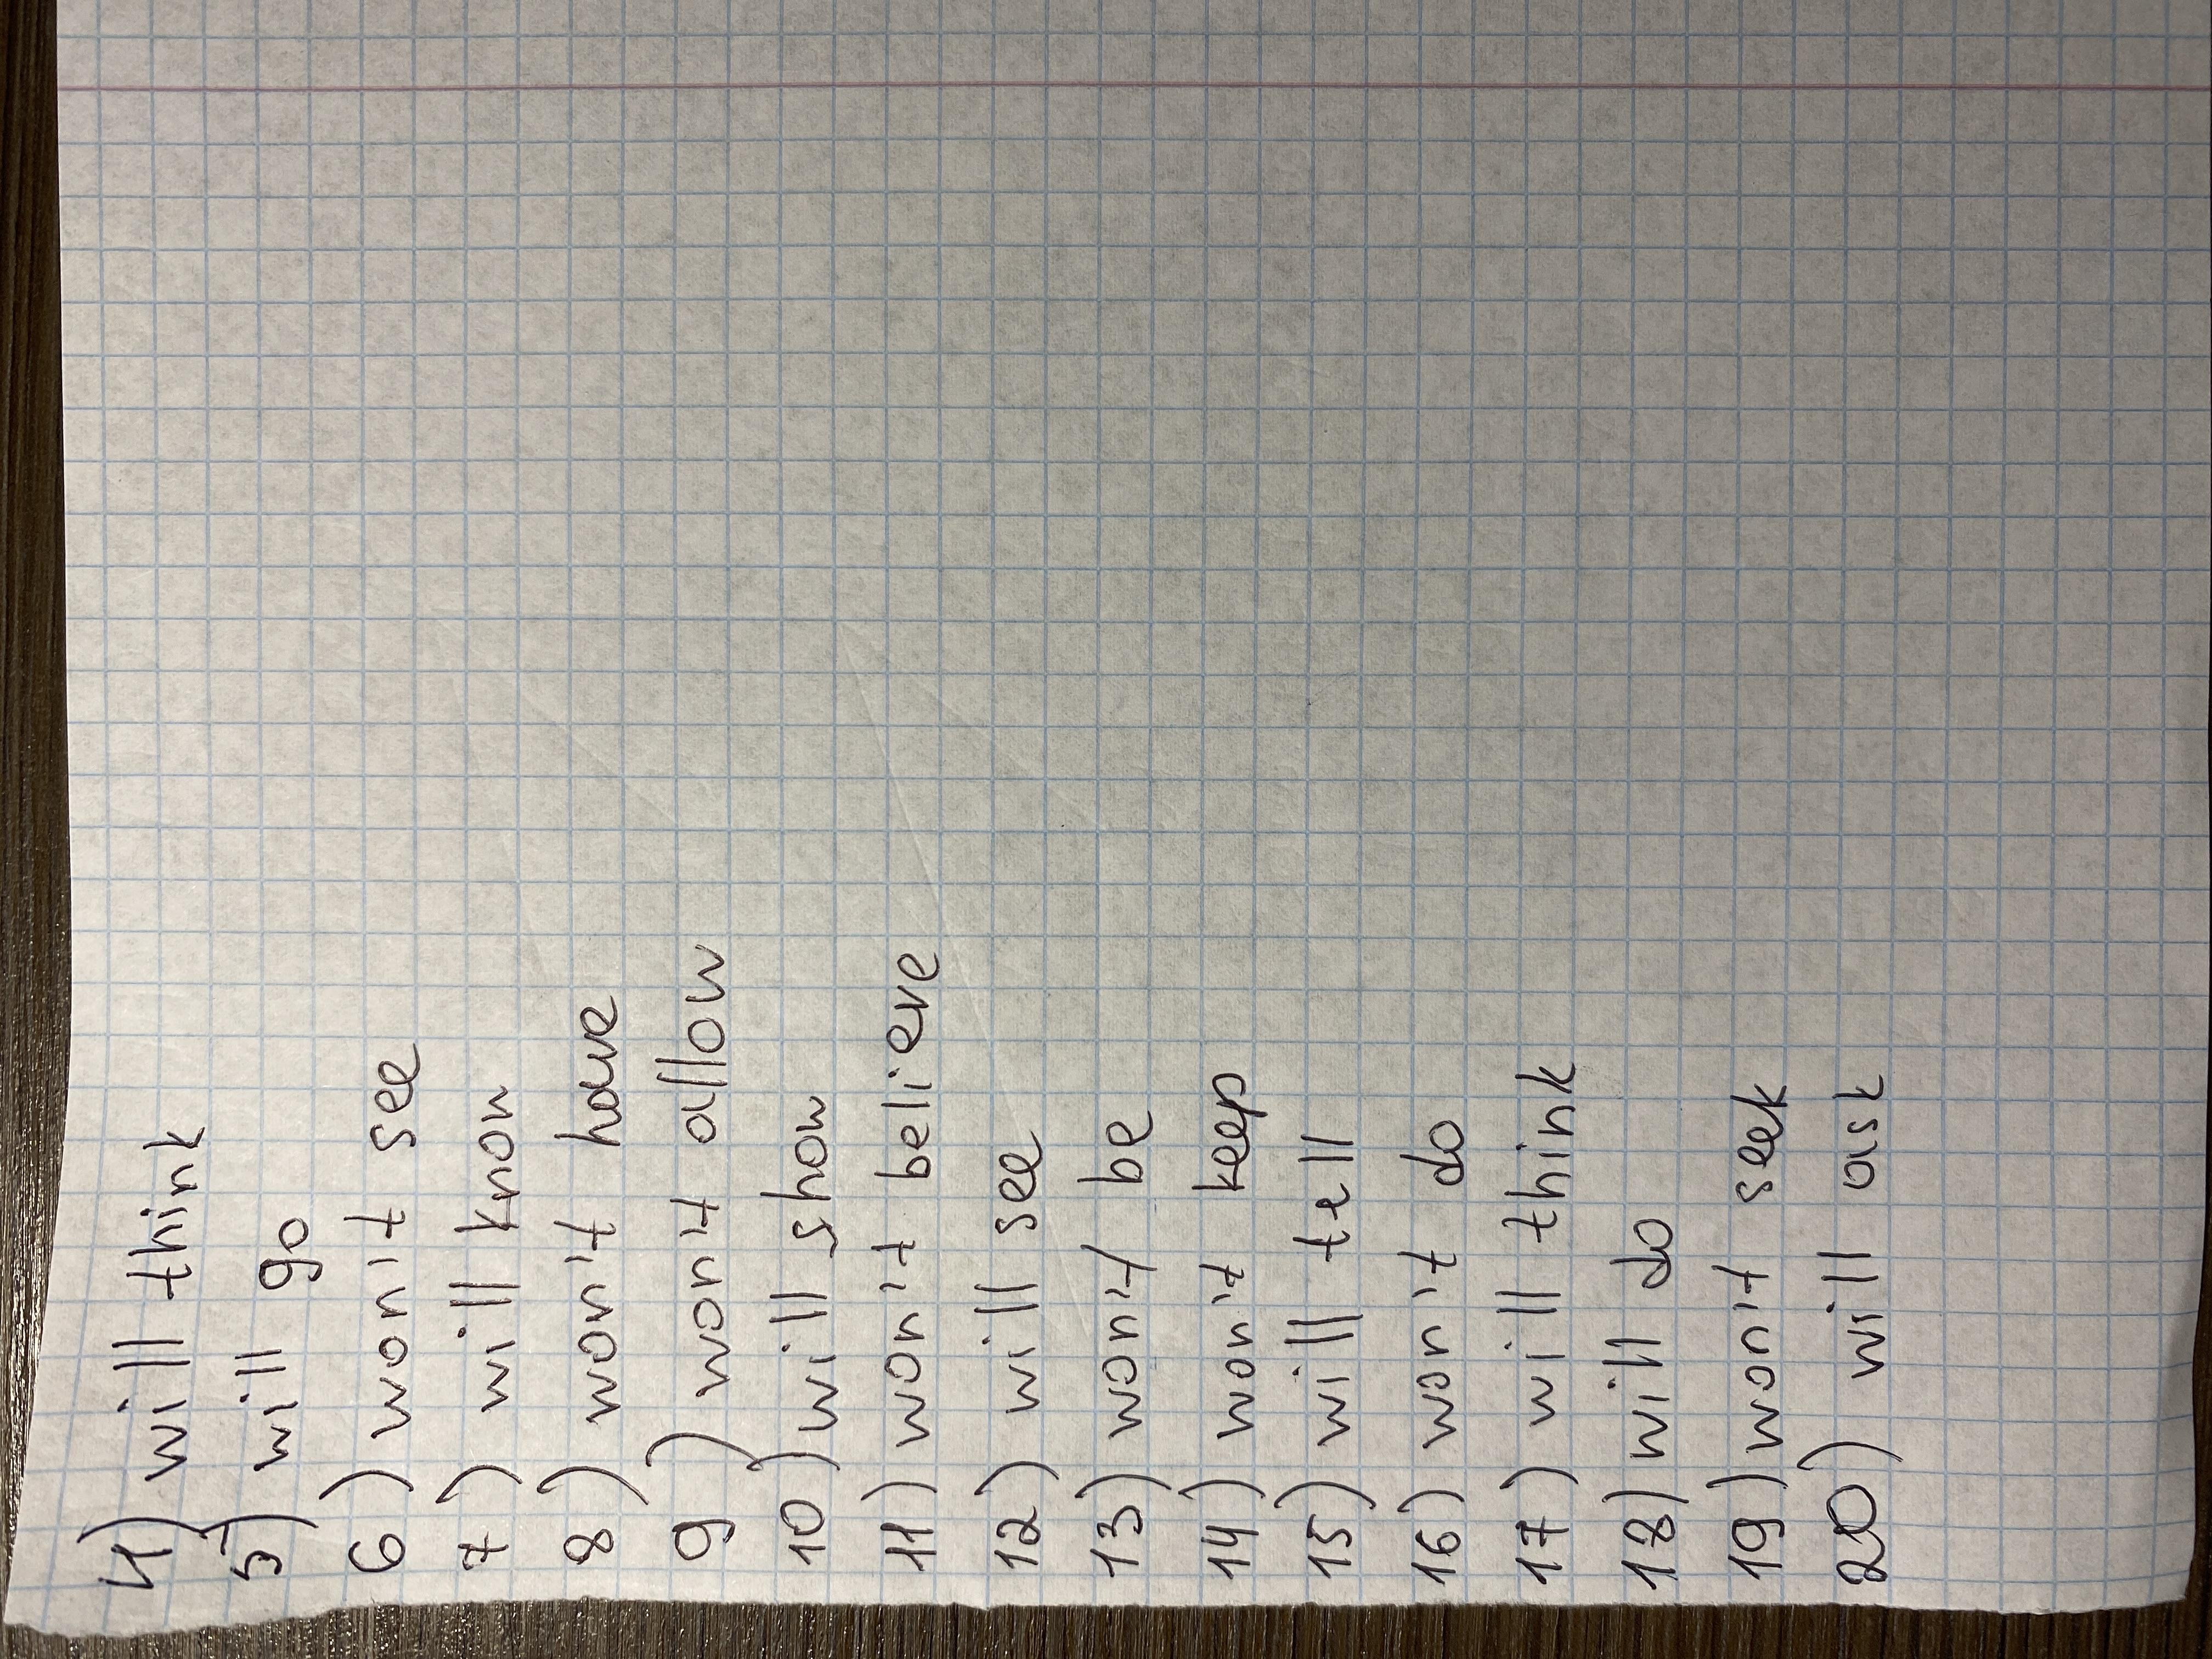 4) will think
5) will go
6) won't see
7) will know
8) won't have
9) won't allow
10) will show
11) won't believe
12) will see
13) won't be
14) won't keep
15) will tell
16) won't do
17) will think
18) will do
19) won't seek
20) will ask